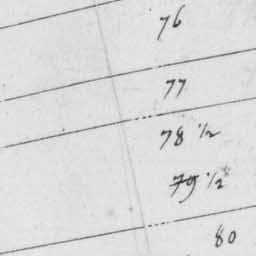 76
77
78 ½
79 ½
80